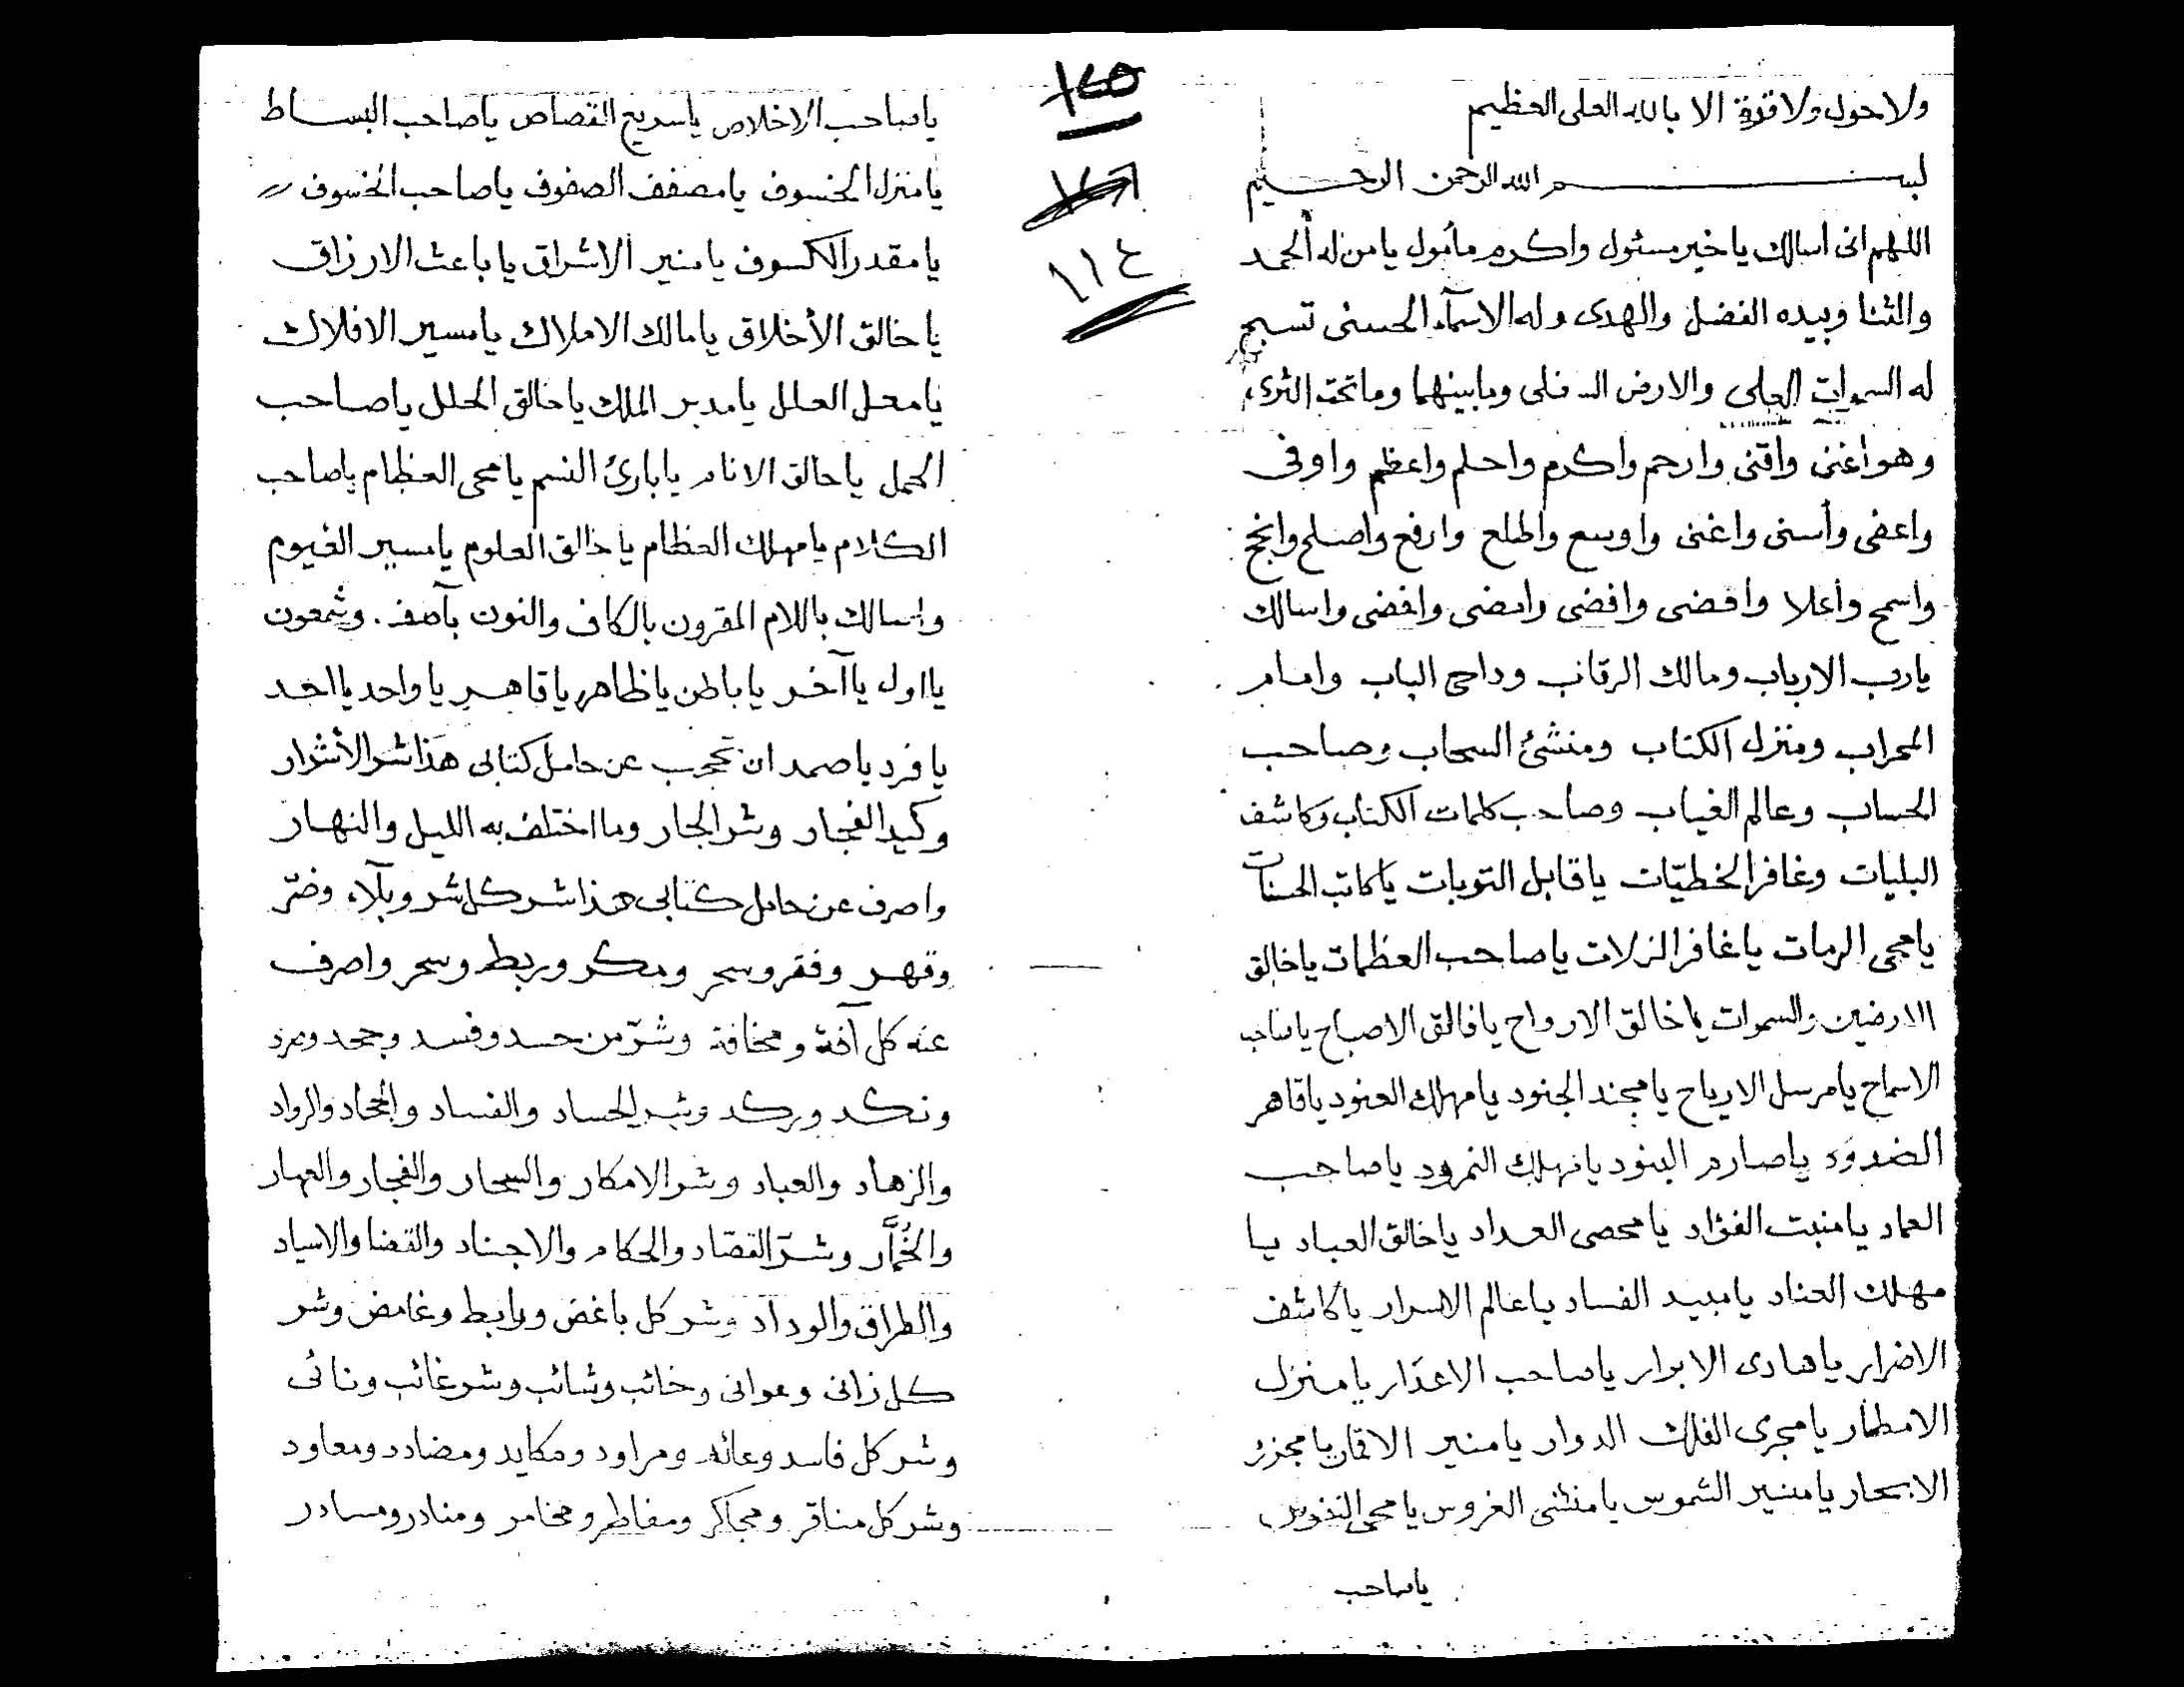 ولا حول ولا قوة الا بالله العلى العظيم
بسم الله الرحمن الرحيم
اللهم انى أسالك يا خير مسئول واكرم مأمول يا من له الحمد
والثنا وبيده الفضل والهدى وله الاسمآء الحسنى تسبح
له السموات العلى والارض السفلى وما بينهما وما تحت الثرى
وهو اغنى واقنى وارحم واكرم واحلم واعظم واوفى
واعفى وأسنى واغنى واوسع واطلع وارفع واصلح وانجح
واسمح وأعلا واقضى وافضى وامضى وافضى واسالك
يا رب الارباب ومالك الرقاب وداحى الباب وامام
المحراب ومنزل الكتاب ومنشئ السحاب وصاحب
الحساب وعالم الغياب وصاحب كلمات الكتاب وكاشف
البليات وغافر الخطيّات يا قابل التوبات يا كاتب الحسنات
يا محى الرمات يا غافر الزلات يا صاحب العظمات يا خالق
الارضين والسموات يا خالق الارواح يا فالق الاصباح يا صاحب
الاسماح يا مرسل الارياح يا مجند الجنود يا مهلك العنود يا قاهر
يا صارم البنود يا مهلك النمرود يا صاحب
العماد يا منبت الفؤاد يا محصى العداد يا خالق العباد يا
مهلك العناد يا مبيد الفساد يا عالم الاسرار يا كاشف
الاضرار يا هادى الابرار يا صاحب الاعذار يا منزل
الامطار يا مجرى الفلك الدوار يا منير الاقمار يا مجزر
الابحار يا منير الشموس يا منشى الغروس يا محى النفوس
يا صاحب
١٢٥
١١٤
يا صاحب الاخلاص يا سريع القصاص يا صاحب البساط
يا منزل الخسوف يا مصفف الصفوف يا صاحب الخسوف
يا مقدر الكسوف يا منير الاشراق يا باعث الارزاق
يا خالق الأخلاق يا مالك الاملاك يا مسير الافلاك
يا معل العلل يا مدبر الملك يا خالق الحلل يا صاحب
الحمل يا خالق الانام يا بارئ النسم يا محى العظام يا صاحب
الكلام يا مهلك العظام يا خالق العلوم يا مسير الغيوم
واسالك باللام المقرون بالكاف والنون بآصف وشمعون
يا اول يا آخر يا باطن يا ظاهر يا قاهر يا واحد يا احد
يا فرد يا صمد ان تحجب عن حامل كتابى هذا شر الأشرار
وكيد الفجار وشر الجار وما اختلف به الليل والنهار
واصرف عن حامل كتابى هذا شر كل شر وبلآء وضرّ
وقهر وفقر وسحر ومكر وربط وسحر واصرف
عنه كل آفة ومخافة وشرّ من حسد وفسد وجحد ومرد
ونكد وركد وشر الحساد والفساد والجحاد والرواد
والزهاد والعباد وشر الامكار والسحار والفجار والعهار
والخُمَّار وشرّ القصّاد والحكام والاجناد والقضا والاسياد
والطراق والوداد وشر كل باغض ورابط وغامض وشر
كل زانى وعوانى وخائب وشائب وشر غائب ونائى
وشر كل فاسد وعائد ومراود ومكايد ومضادد ومعاود
وشر كل مناقر ومماكر ومفاطر ومخامر ومنادر ومسادر